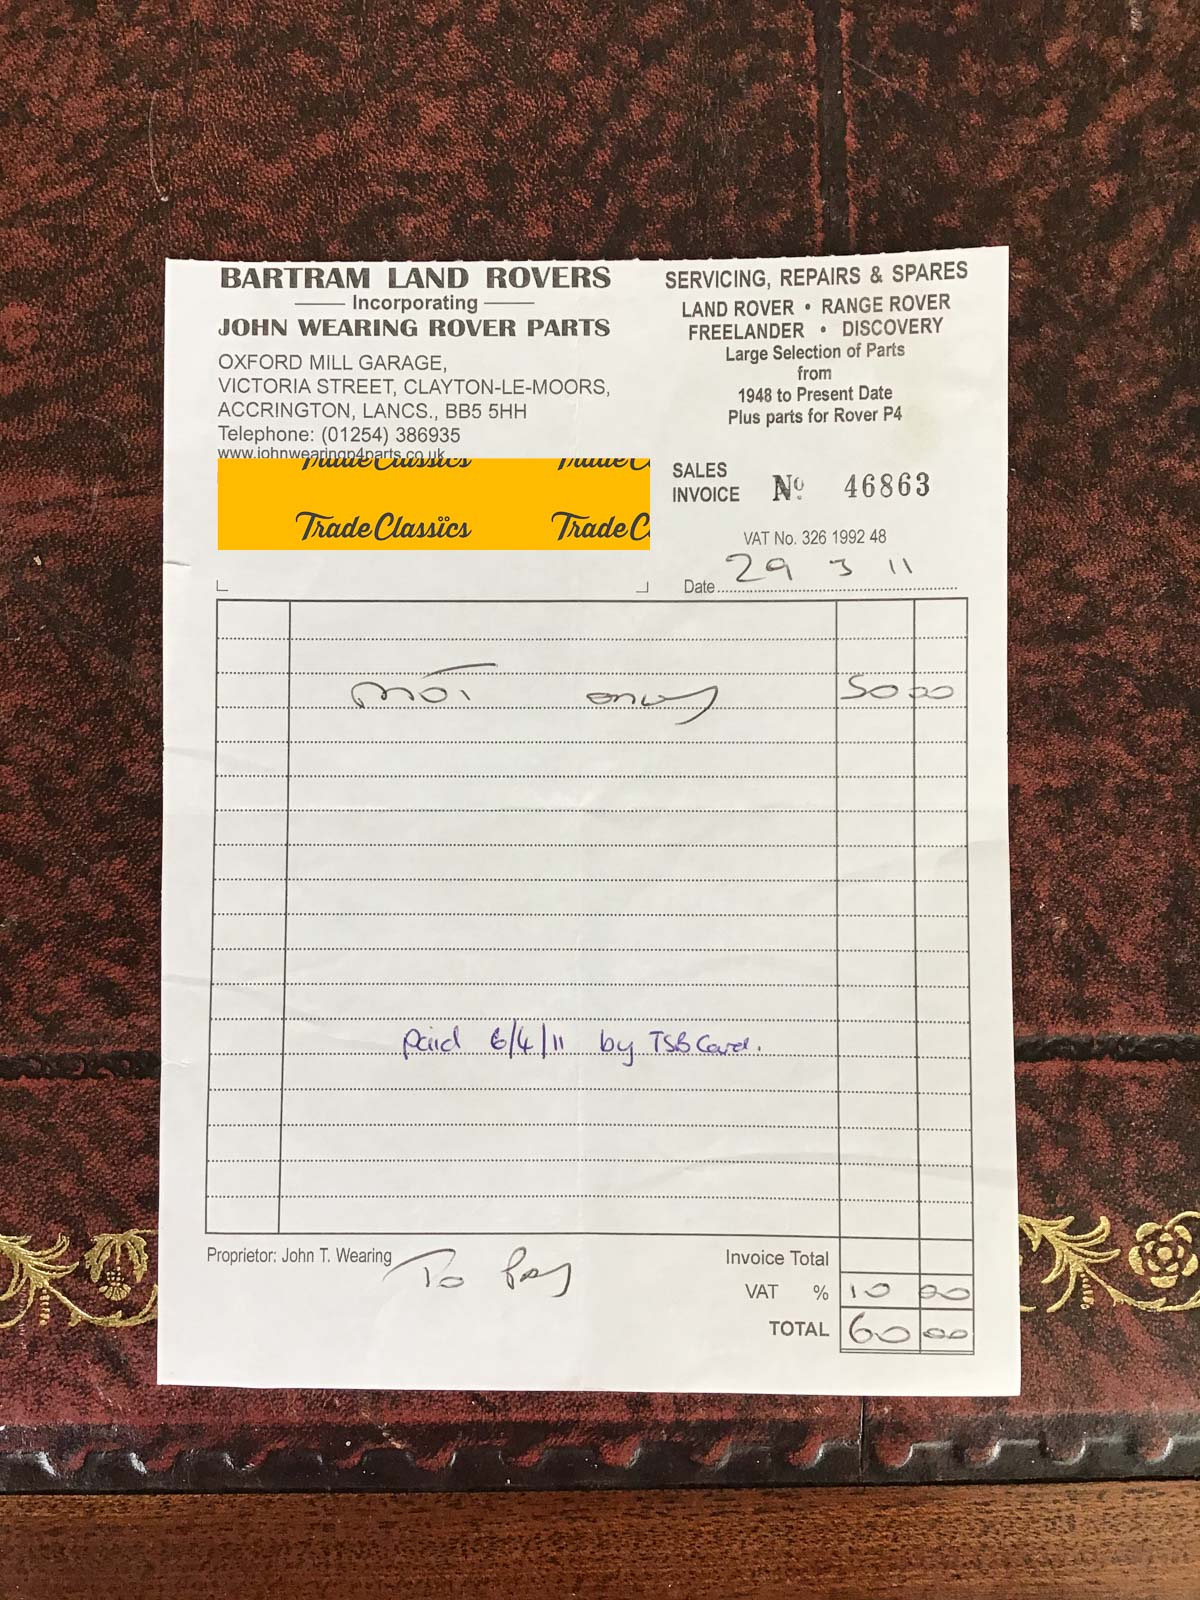 BARTRAM LAND ROVERS
Incorporating
JOHN WEARING ROVER PARTS
OXFORD MILL GARAGE,
VICTORIA STREET, CLAYTON-LE-MOORS,
ACCRINGTON, LANCS., BB5 5HH
Telephone: (01254) 386935
www.johnwearingp4parts.co.uk
SERVICING, REPAIRS & SPARES
LAND ROVER • RANGE ROVER
FREELANDER • DISCOVERY
Large Selection of Parts
from
1948 to Present Date
Plus parts for Rover P4
TradeClassics TradeC
TradeClassics TradeC
SALES
INVOICE No. 46863
VAT No. 326 1992 48
Date 29 3 11
MOT 50 00
Paid 6/4/11 by TSB Card.
Proprietor: John T. Wearing
To Pay
Invoice Total
VAT % 10 00
TOTAL 60 00